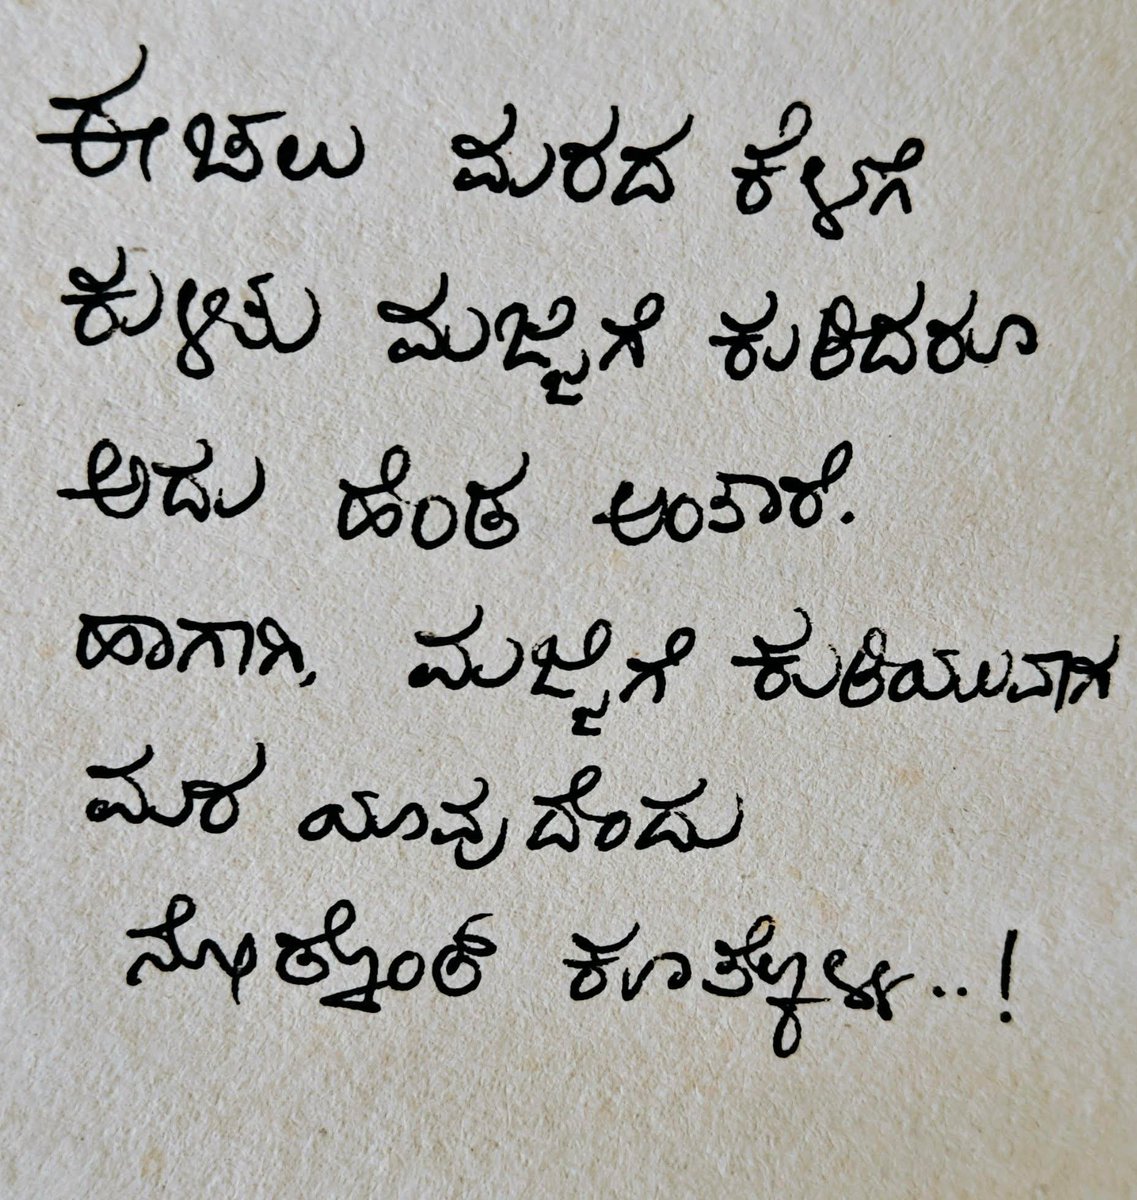 ಈಚಲು ಮರದ ಕೆಳಗೆ
ಕುಳಿತು ಮಜ್ಜಿಗೆ ಕುಡಿದರೂ
ಅದು ಹೆಂಡ ಅಂತಾರೆ.
ಹಾಗಾಗಿ, ಮಜ್ಜಿಗೆ ಕುಡಿಯುವಾಗ
ಮರ ಯಾವುದೆಂದು
ನೋಡ್ಕೊಂಡ್ ಕೂತ್ಕೊಳ್ಳಿ..!